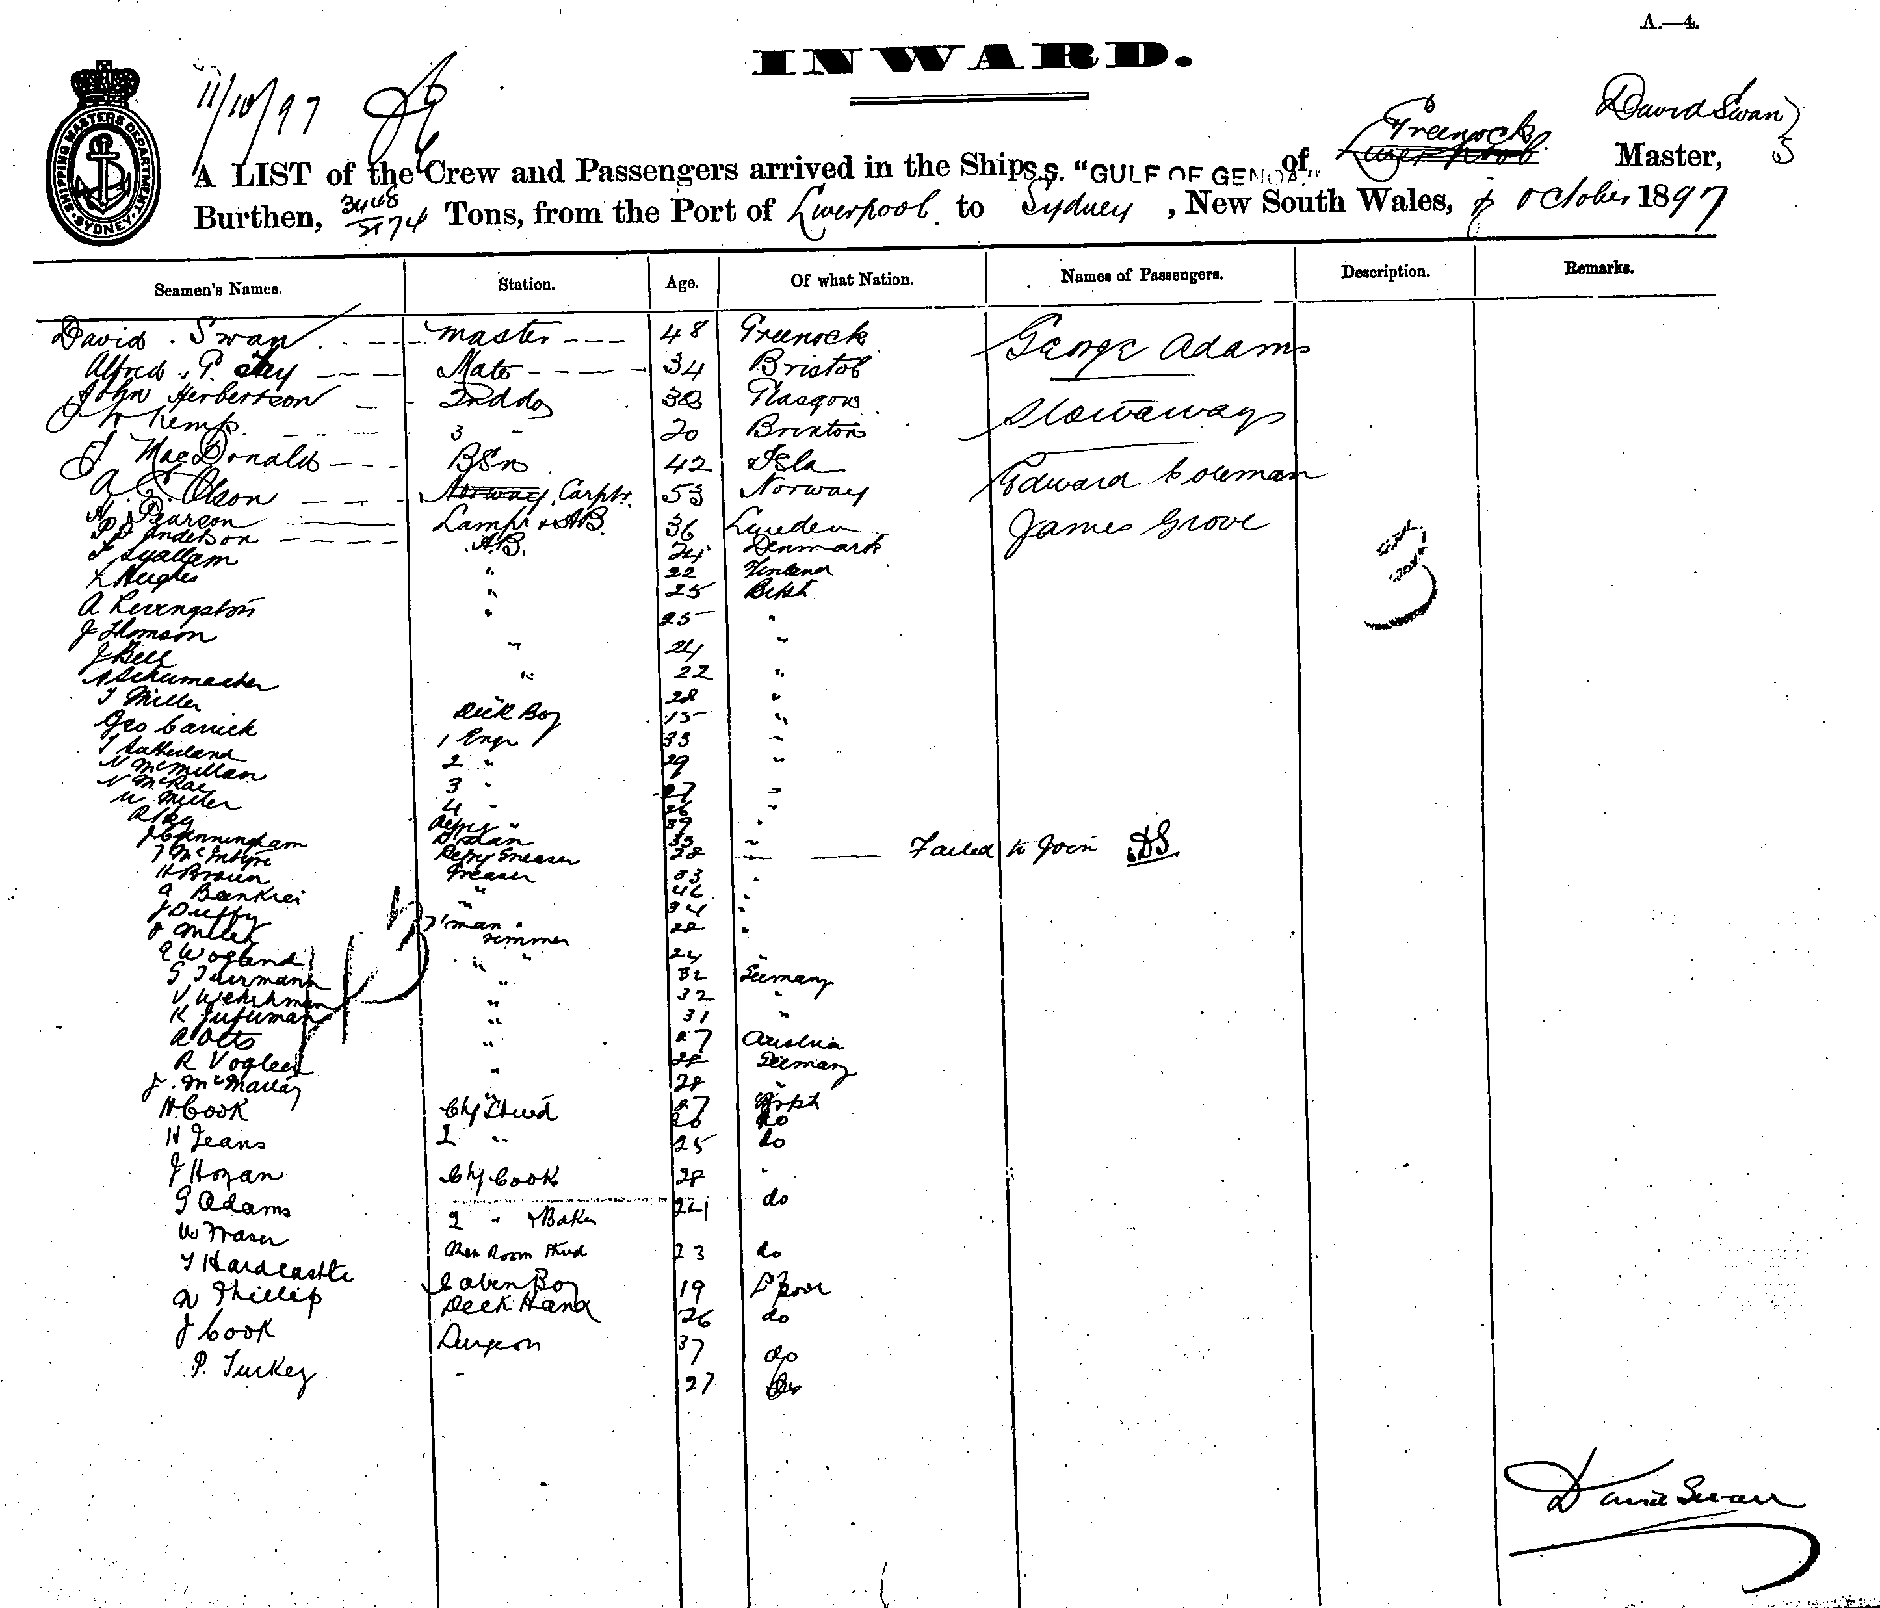 A.—4.
INWARD.
SHIPPING MASTERS DEPARTMENT SYDNEY
11/10/97
David Swan
Greenock
A LIST of the Crew and Passengers arrived in the Ship S.S. "GULF OF GENOA." of Liverpool Master,
Burthen, 3448 Tons, from the Port of Liverpool to Sydney, New South Wales, October 1897
Seamen's Names. Station. Age. Of what Nation. Names of Passengers. Description. Remarks.
David Swan Master 48 Greenock George Adams
Alfred P. Mate 34 Bristol
John Herbertson 2nd do 38 Glasgow Stowaways
Kemp 3 " 20 Brixton
J MacDonald BSn 42 Isla Edward Coleman
A E. Olson Norway Carptr. 53 Norway
Pearson Lampr & AB. 36 Sweden James Grove
Anderson A.B. 24 Denmark
J Syallam " 22 Finland
L Hughes " 25 Britsh
A Livingston " 25 "
J Thomson " 24 "
J Bell " 22 "
Schumacher " 28 "
T Miller Deck Boy 15 "
Geo Carrick 1 Engr 33 "
J Sutherland 2 " 29 "
N McMillan 3 " 27 "
N McRae 4 " 26 "
W Miller
J Cunningham
T McIntyre Greaser 28 " Failed to Join DS
H Brown Greaser 33 "
Bankier " 46 "
J Duffy " 34 "
Miller F'man " 28 "
Trimmer
E Wogland " 24 "
G Fuermann " 32 Germany
V Wehrhman " 32 "
K " 31 "
A Otto " 27 Austria
R Vogleer " 28 Germany
J. McMallay " 28 "
H Cook Chf Stwd 27
26 do
H Jeans 2 " 25 do
J Hogan Chf Cook 28 "
G Adams 2 " & Baker 24 do
W Fraser Mess Room Stwd 23 do
T Hardcastle Cabin Boy 19 L'pool
W Phillip Deck Hand 26 do
J Cook Surgeon 37 do
P. Turkey - 27 do
3
43
David Swan